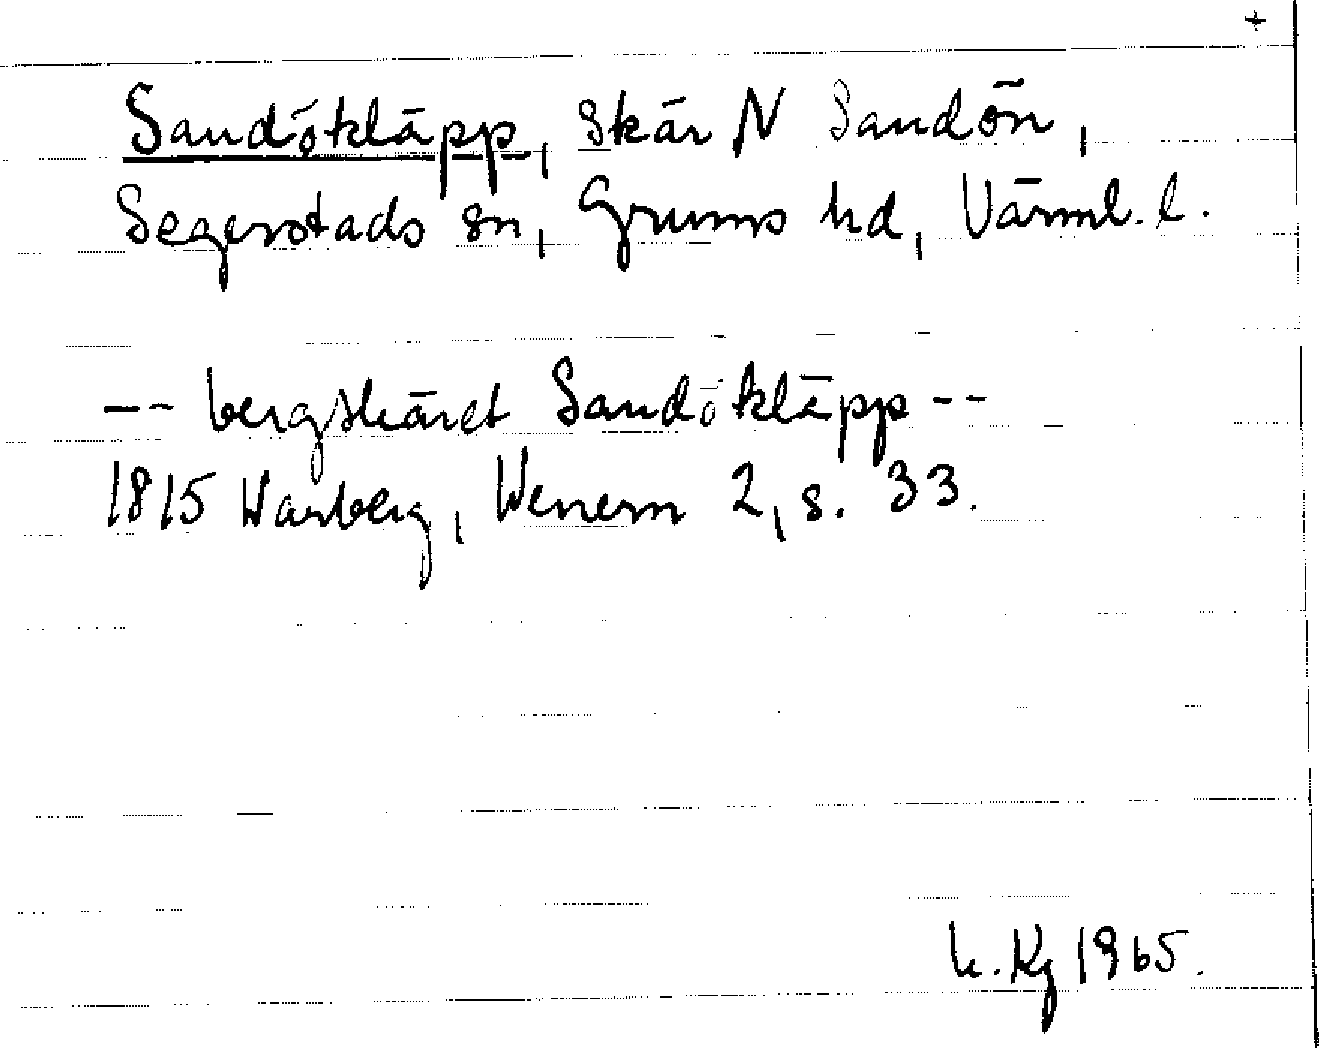 +
Sandökläpp, skär N Sandön,
Segerstads sn, Grums hd, Värml. l.
-- bergskäret Sandökläpp --
1815 Warberg, Wenern 2, s. 33.
h. Kg 1965.